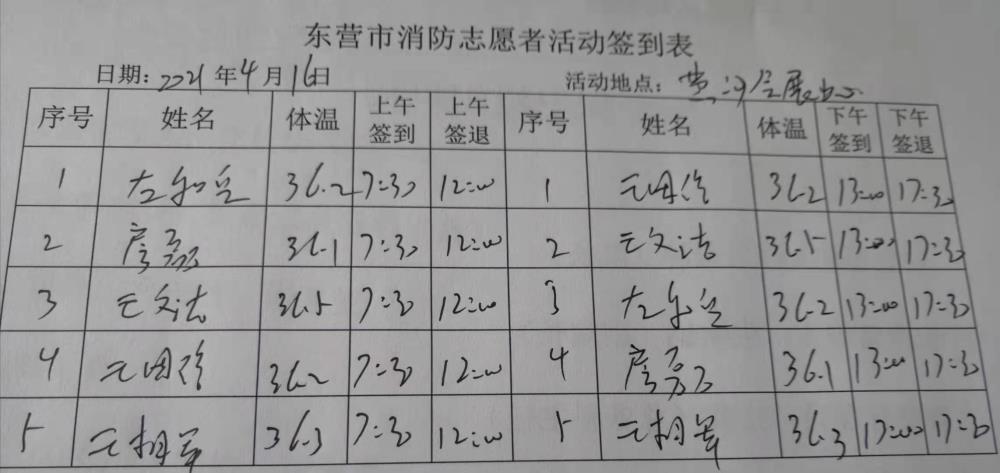 东营市消防志愿者活动签到表
日期: 2021年4月16日 活动地点: 黄河会展中心
序号 姓名 体温 上午签到 上午签退 序号 姓名 体温 下午签到 下午签退
1 36.2 7:30 12:00 1 王国 36.2 13:00 17:30
2 房磊 36.1 7:30 12:00 2 王文法 36.5 13:00 17:30
3 王文法 36.5 7:30 12:00 3 36.2 13:00 17:30
4 王国 36.2 7:30 12:00 4 房磊 36.1 13:00 17:30
5 王相军 36.3 7:30 12:00 5 王相军 36.3 17:30